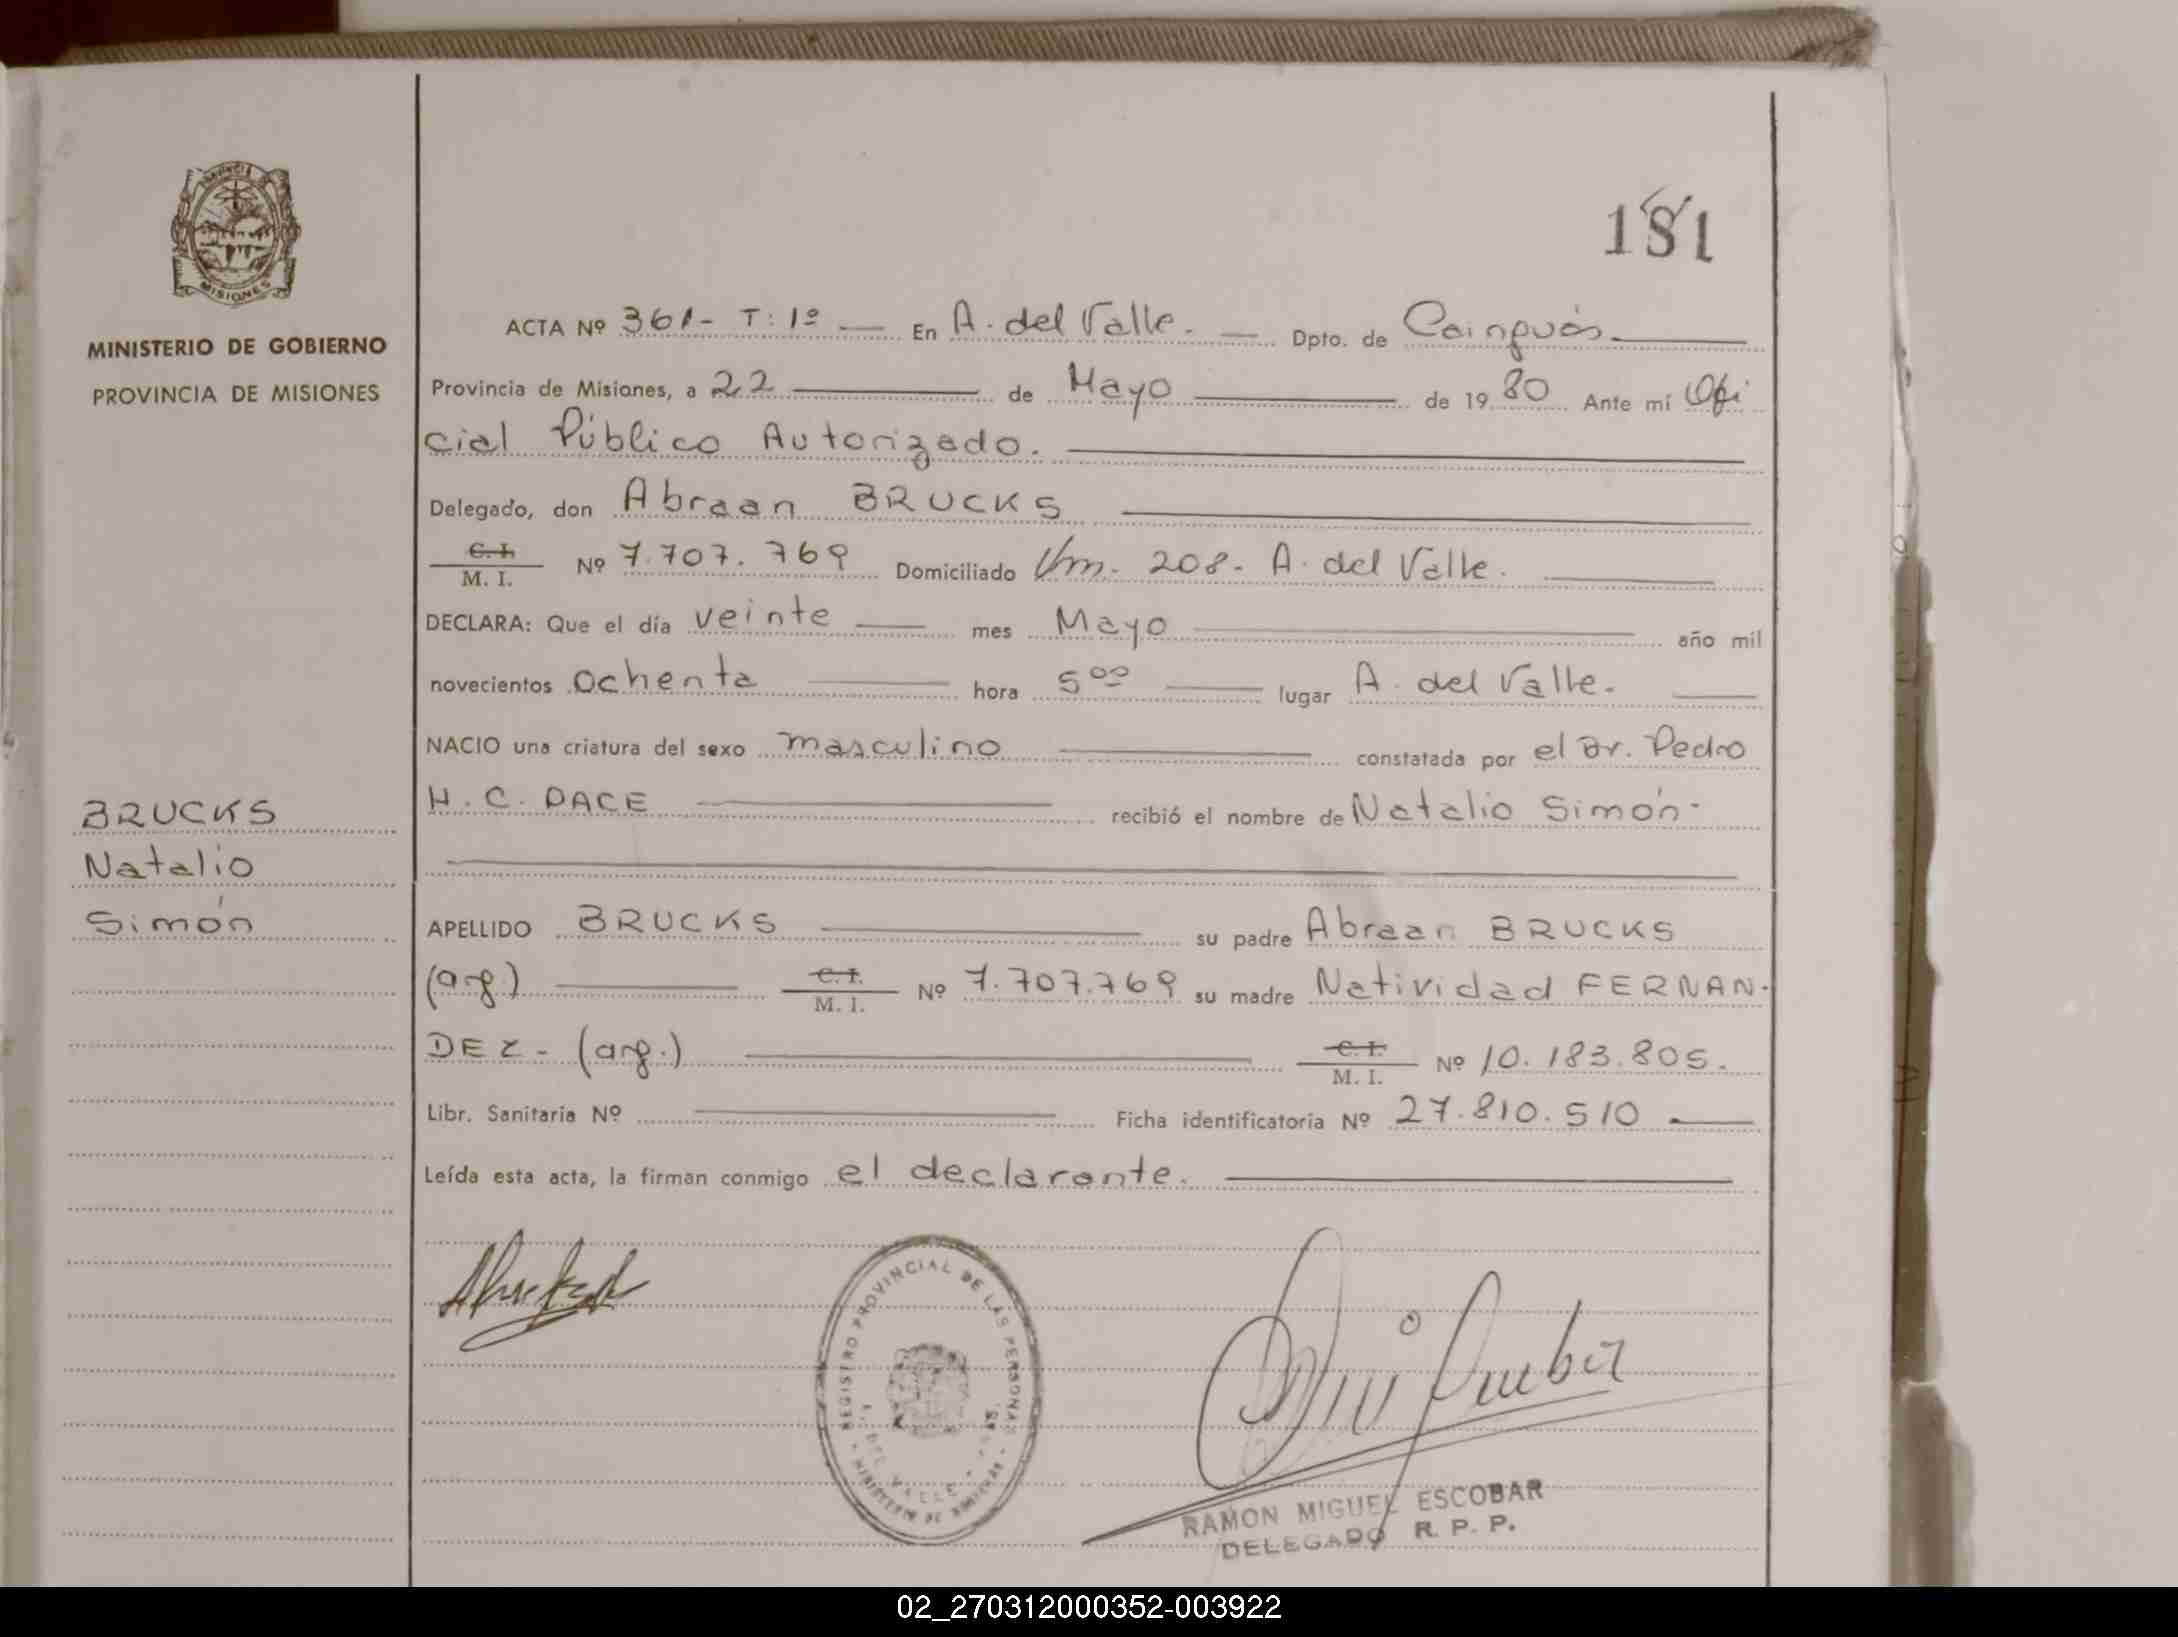 181
MISIONES
MINISTERIO DE GOBIERNO
PROVINCIA DE MISIONES
BRUCKS
Natalio
Simón
ACTA Nº 361- T: 1º En A. del Valle. Dpto. de Cainguás
Provincia de Misiones, a 22 de Mayo de 1980 Ante mí Ofi
cial Público Autorizado.
Delegado, don Abraan BRUCKS
C. I.
M. I. Nº 7.707.769 Domiciliado Km. 208- A. del Valle.
DECLARA: Que el día veinte mes Mayo año mil
novecientos ochenta hora 5 00 lugar A. del Valle.
NACIO una criatura del sexo masculino constatada por el Dr. Pedro
H. C. DACE recibió el nombre de Natalio Simón-
APELLIDO BRUCKS su padre Abraan BRUCKS
(arg.) C. I. M. I. Nº 7.707.769 su madre Natividad FERNAN-
DEZ - (arg.) C. I. M. I. Nº 10.183.805.
Libr. Sanitaria Nº Ficha identificatoria Nº 27.810.510
Leída esta acta, la firman conmigo el declarante.
REGISTRO PROVINCIAL DE LAS PERSONAS
DEL VALLE
RAMON MIGUEL ESCOBAR
DELEGADO R. P. P.
02_270312000352-003922